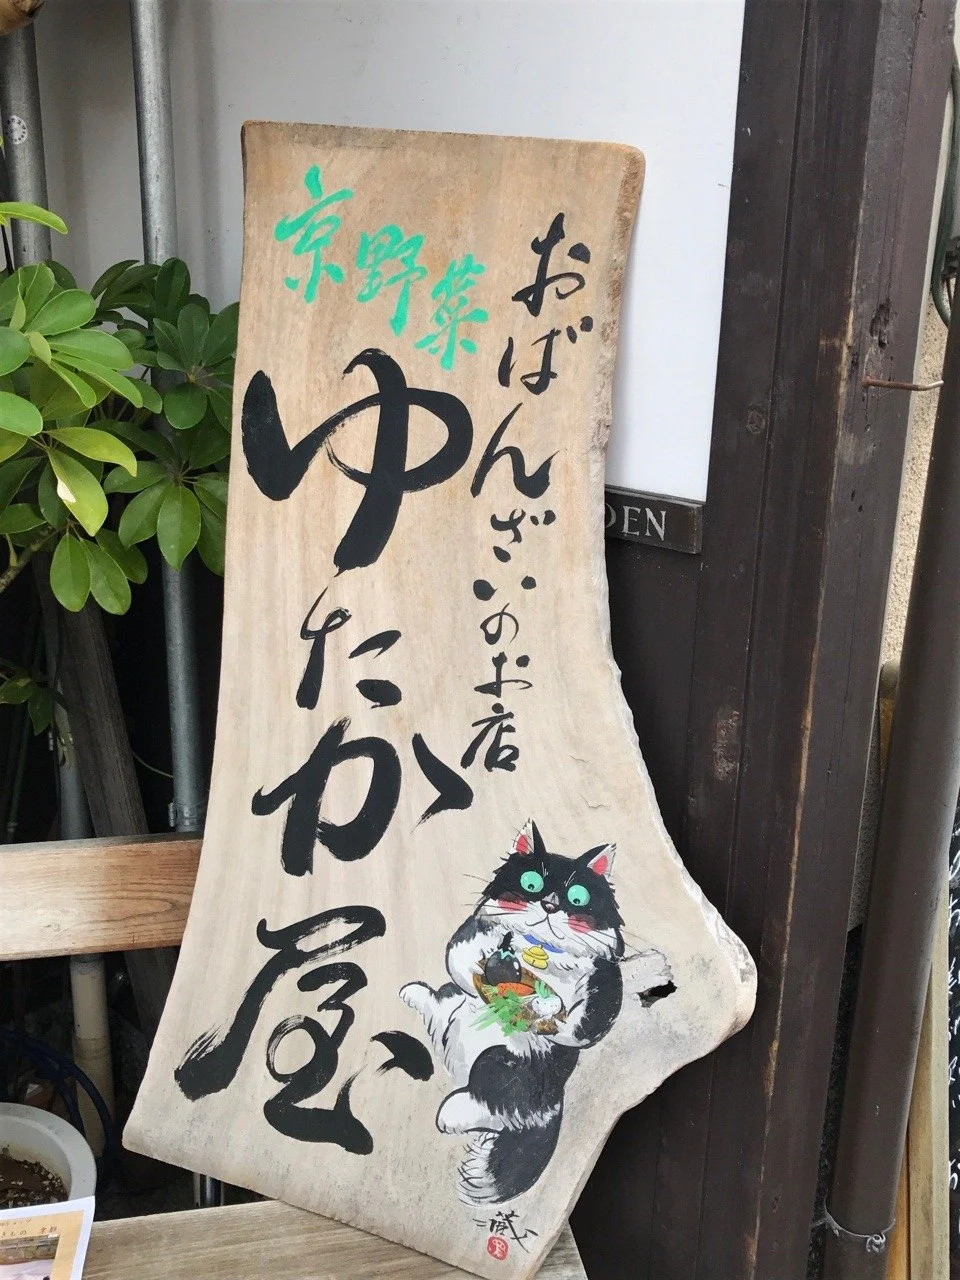 おばんざいのお店
京野菜
ゆたか屋
DEN